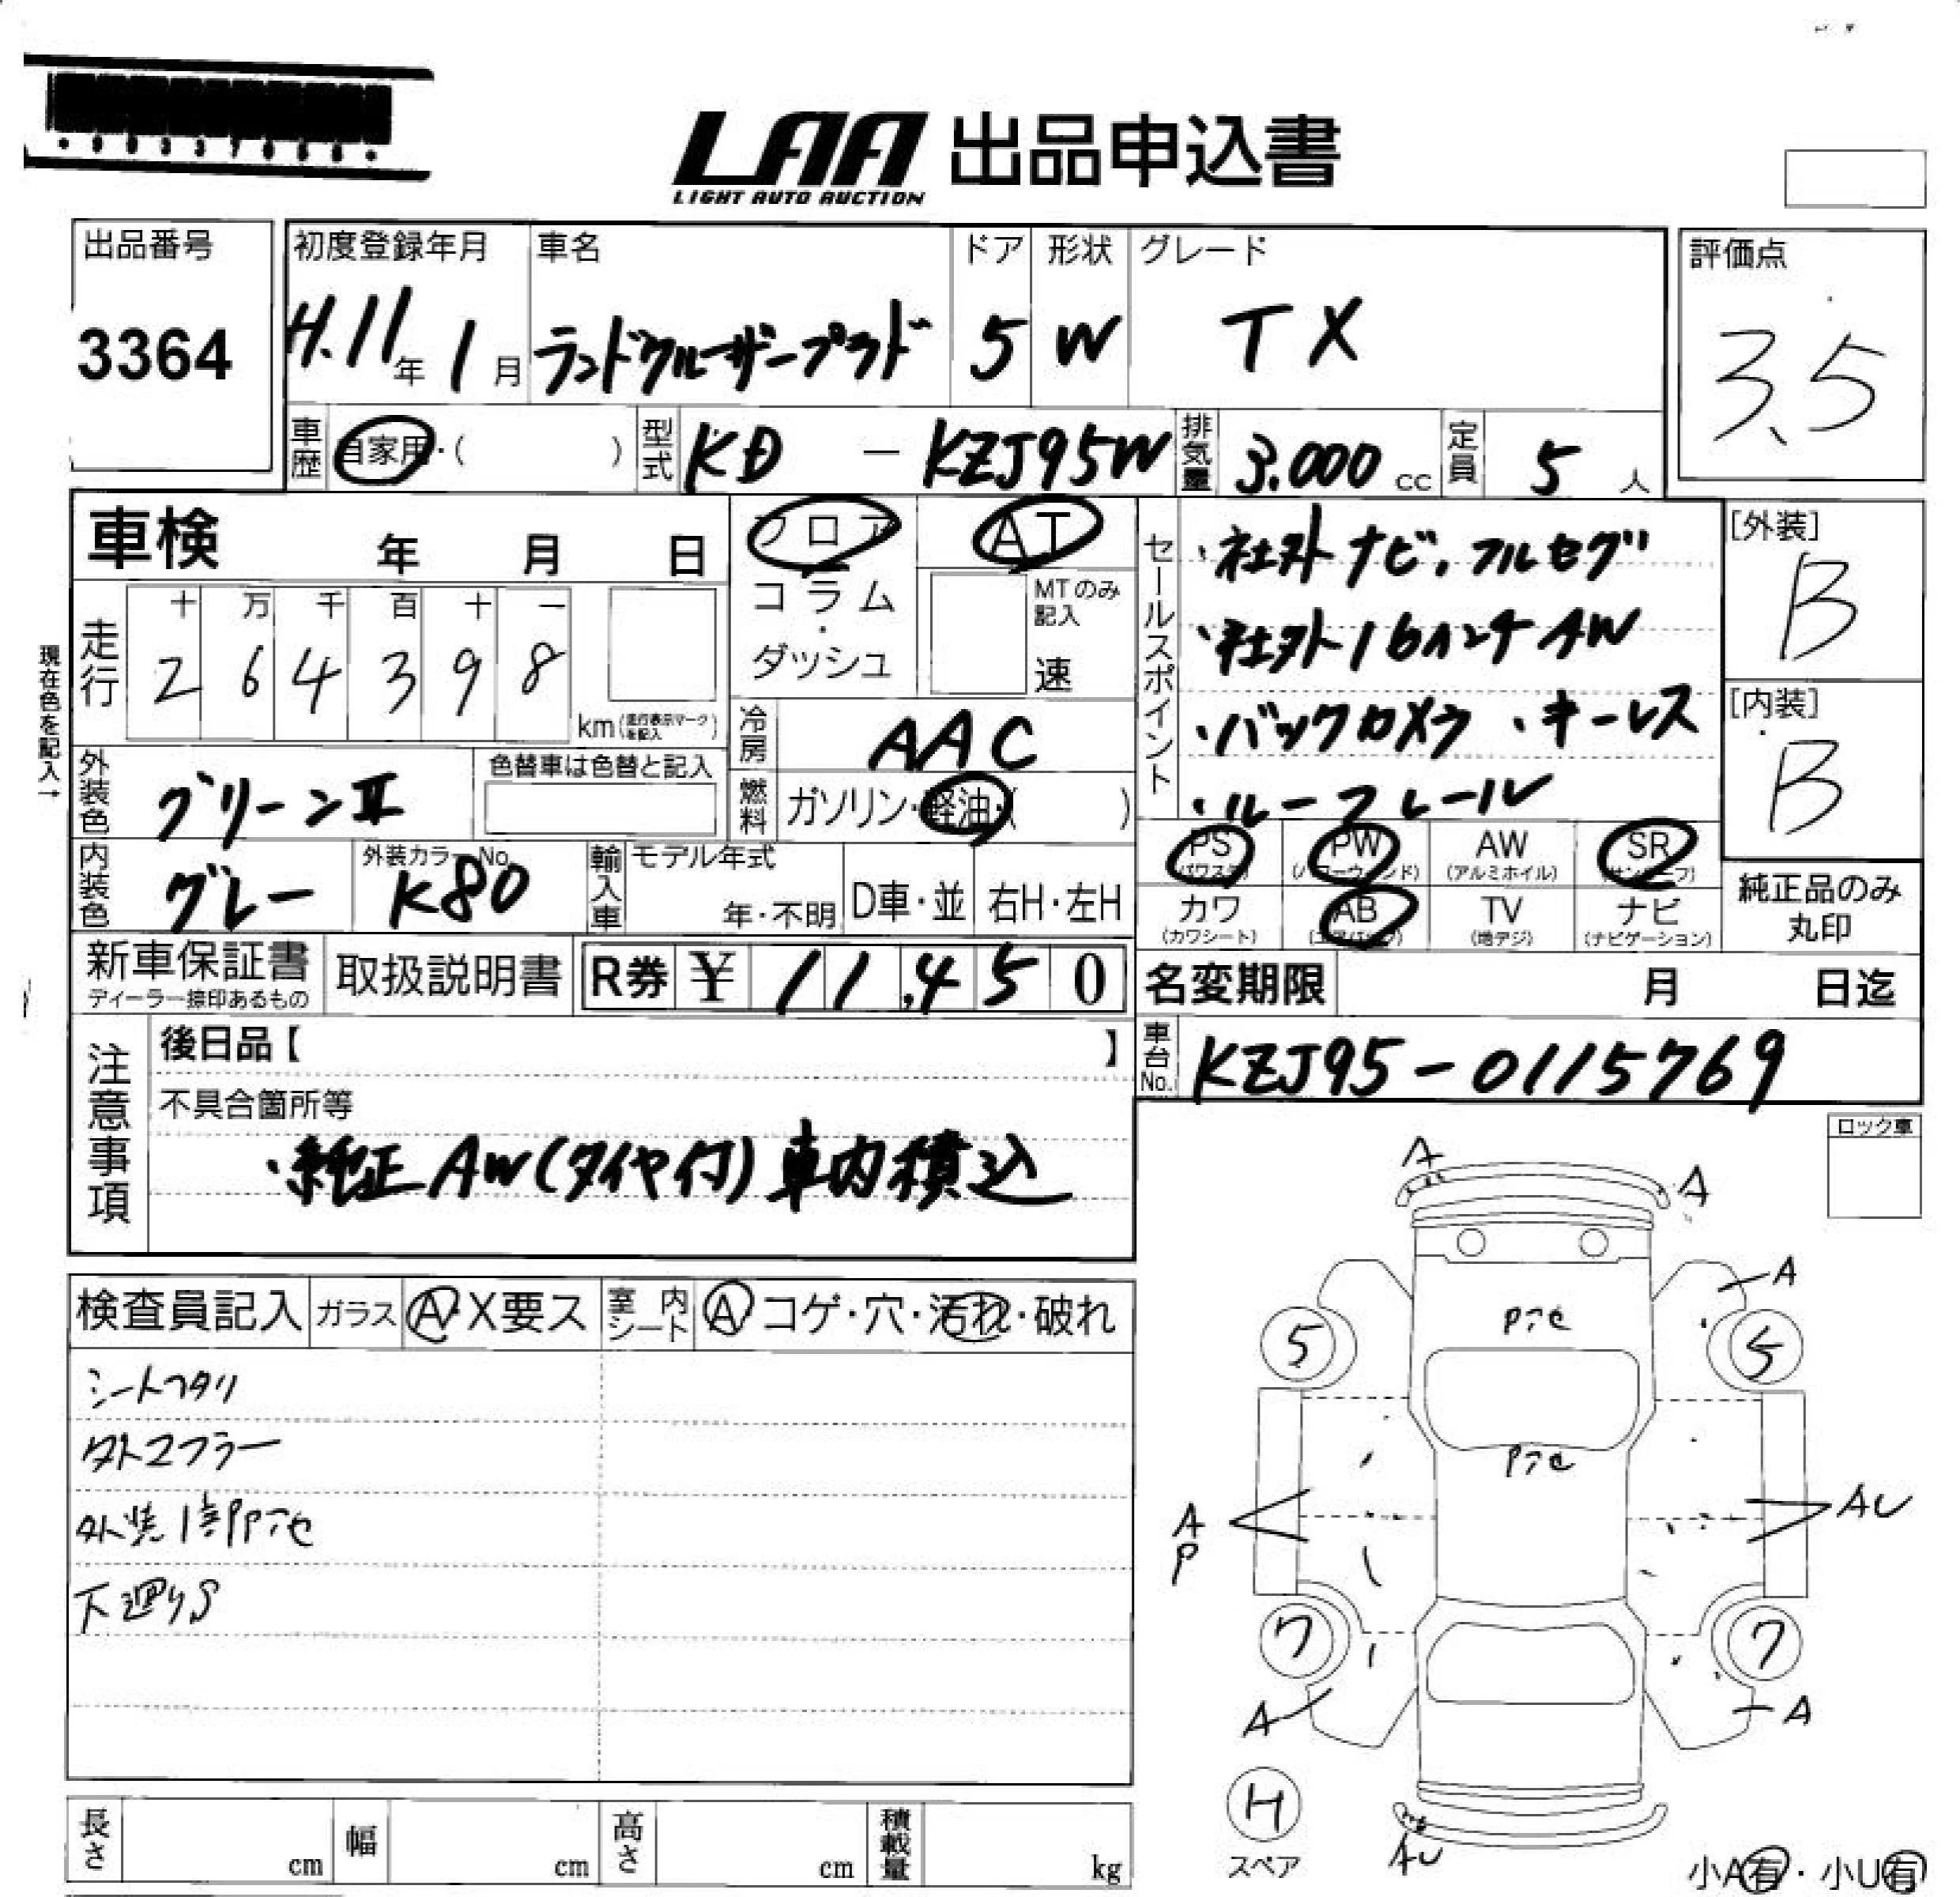 LAA 出品申込書
LIGHT AUTO AUCTION
出品番号
3364
初度登録年月
H.11年 1月
車名
ランドクルーザープラド
ドア
5
形状
W
グレード
TX
評価点
3.5
車歴 自家用・( )
型式 KD - KZJ95W
排気量 3.000 cc
定員 5 人
車検 年 月 日
フロア
コラム・
ダッシュ
AT
MTのみ
記入
速
現在色を記入→
走行
十 万 千 百 十 一
2 6 4 3 9 8
km(走行表示マークを記入)
冷房 AAC
燃料 ガソリン・軽油・( )
外装色 グリーンⅡ
色替車は色替と記入
内装色 グレー
外装カラーNo.
K80
輸入車 モデル年式
年・不明 D車・並 右H・左H
セールスポイント
・社外ナビ、フルセグ
・社外16インチAW
・バックカメラ ・キーレス
・ルーフレール
[外装]
B
[内装]
B
PS (パワステ) PW (パワーウィンド) AW (アルミホイル) SR (サンルーフ)
カワ (カワシート) AB (エアバック) TV (地デジ) ナビ (ナビゲーション)
純正品のみ
丸印
新車保証書
ディーラー捺印あるもの
取扱説明書
R券 ¥ 11,450
名変期限 月 日迄
車台No. KZJ95-0115769
注意事項
後日品【 】
不具合箇所等
・純正AW(タイヤ付)車内積込
ロック車
検査員記入 ガラス A・X要ス 室内シート A コゲ・穴・汚れ・破れ
シートヘタリ
外マフラー
外装1部Pﾃｾ
下廻りS
A
A
A
Pﾃｾ
5
5
Pﾃｾ
A
P
AU
7
7
A
A
H
スペア
AU
小A有・小U有
長さ cm 幅 cm 高さ cm 積載量 kg